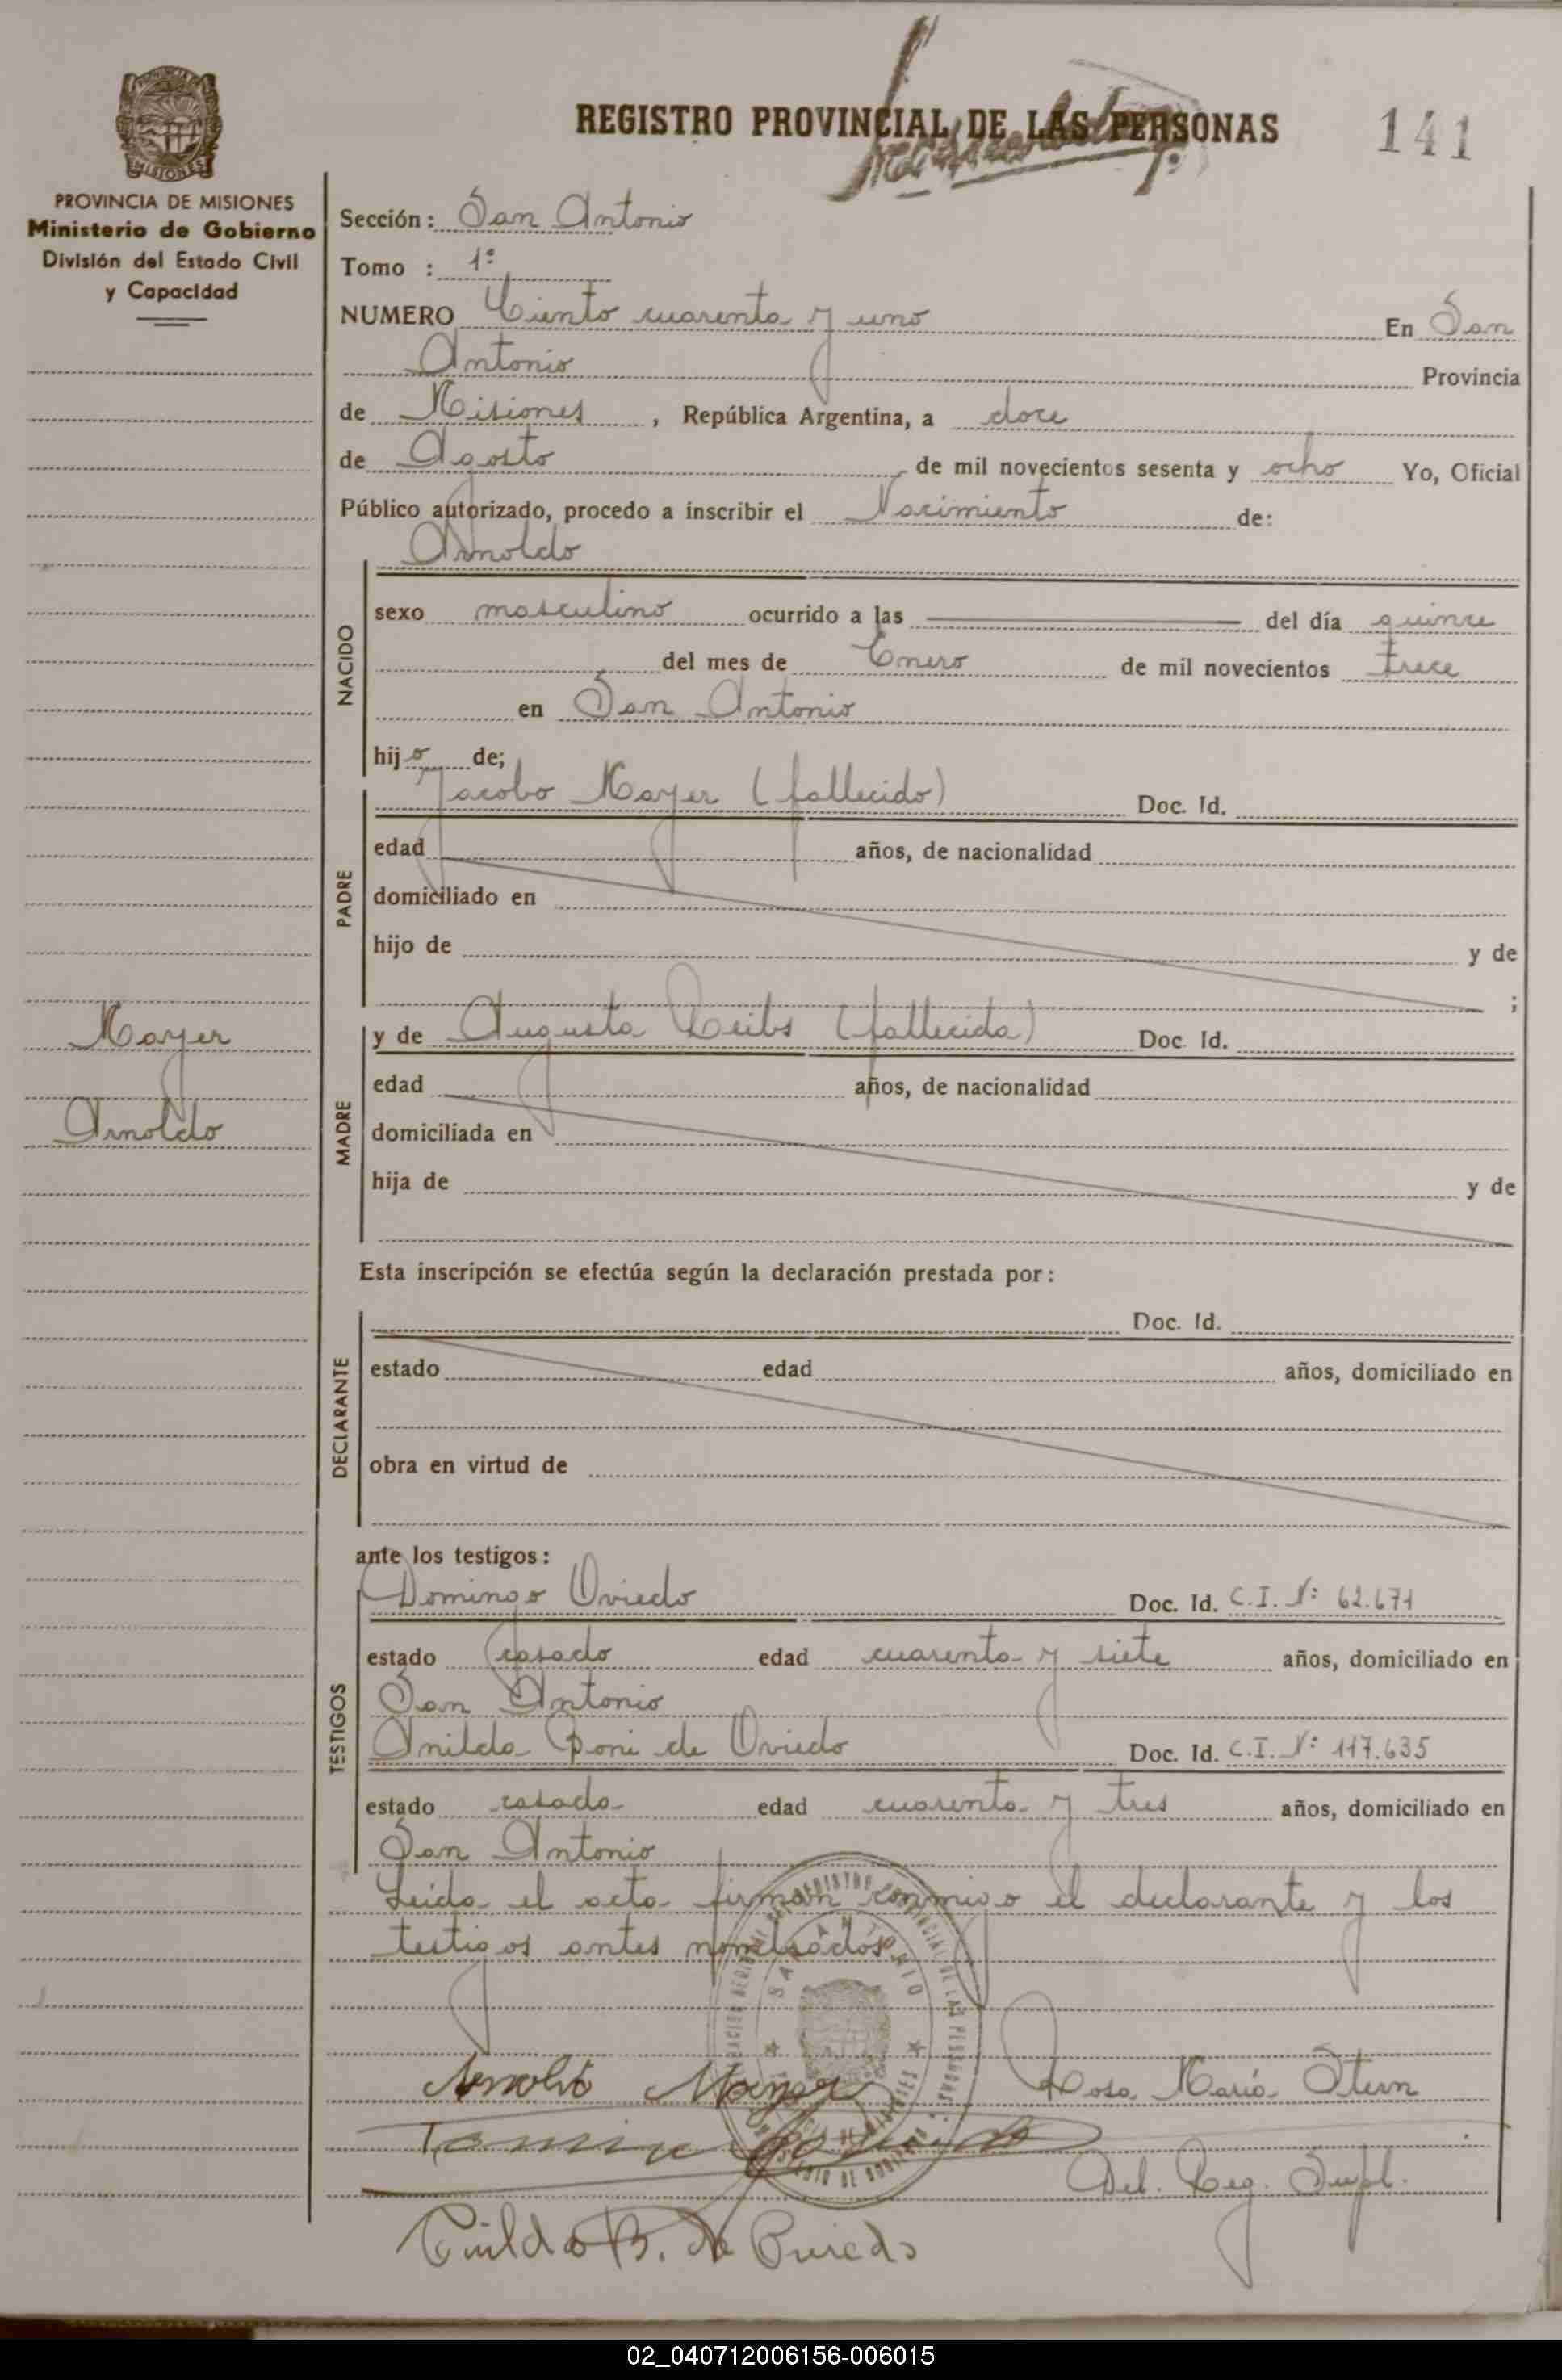 REGISTRO PROVINCIAL DE LAS PERSONAS
141
PROVINCIA DE MISIONES
Ministerio de Gobierno
División del Estado Civil
y Capacidad
Sección: San Antonio
Tomo : 1º
NUMERO Ciento cuarenta y uno En San
Antonio Provincia
de Misiones, República Argentina, a doce
de Agosto de mil novecientos sesenta y ocho Yo, Oficial
Público autorizado, procedo a inscribir el Nacimiento de:
Arnoldo
NACIDO
sexo masculino ocurrido a las del día quince
del mes de Enero de mil novecientos trece
en San Antonio
hijo de;
PADRE
Jacobo Mayer (fallecido) Doc. Id.
edad años, de nacionalidad
domiciliado en
hijo de y de
;
Mayer
Arnoldo
MADRE
y de Augusta (fallecida) Doc. Id.
edad años, de nacionalidad
domiciliada en
hija de y de
Esta inscripción se efectúa según la declaración prestada por:
DECLARANTE
Doc. Id.
estado edad años, domiciliado en
obra en virtud de
ante los testigos:
TESTIGOS
Domingo Oviedo Doc. Id. C.I. Nº 62.671
estado casado edad cuarenta y siete años, domiciliado en
San Antonio
de Oviedo Doc. Id. C.I. Nº 117.635
estado casada edad cuarenta y tres años, domiciliado en
San Antonio
Leída el acta firman conmigo el declarante y los
testigos antes nombrados
SAN ANTONIO
Arnoldo Mayer
Rosa María Stern
Del. Reg. Supl.
B. de Oviedo
02_040712006156-006015